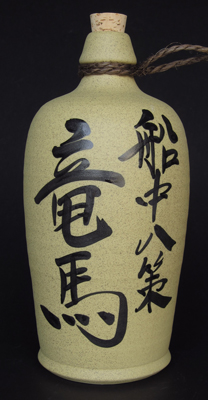 船中八策
竜馬